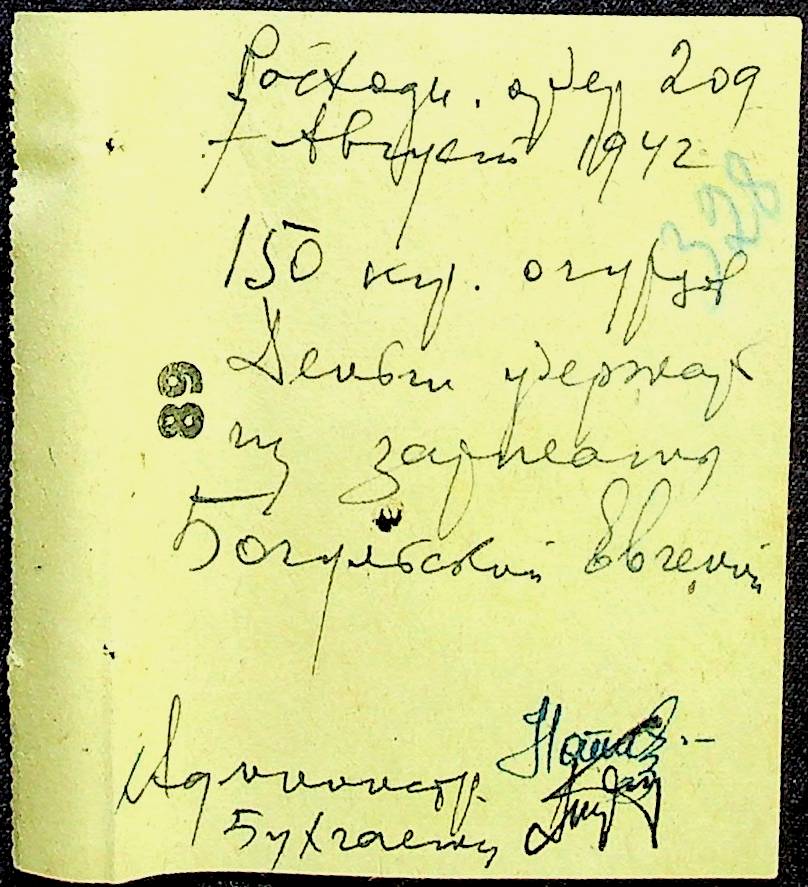 Расходн. ордер 209
7 Август 1942
328
150 кг. огурцов
Деньги удержать
89
из зарплаты
Богульский Евгений
Администр.
Бухгалтер